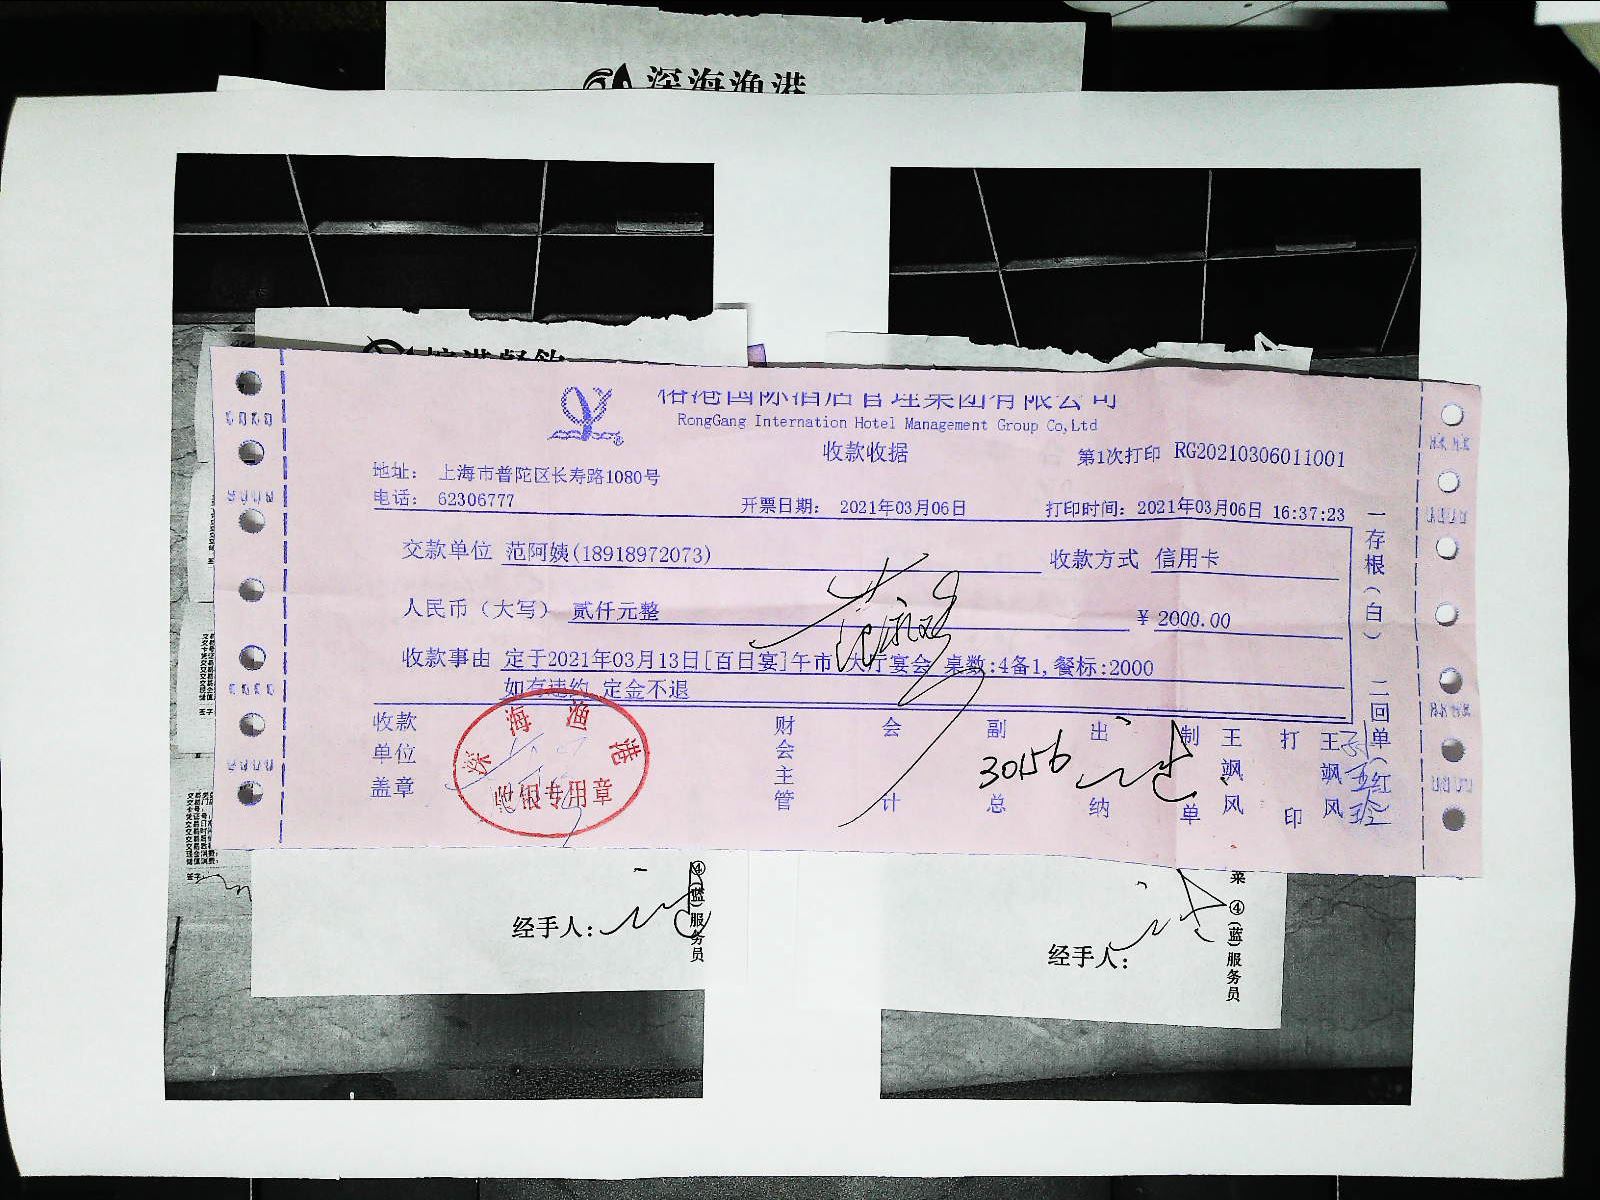 深海渔港
榕港国际酒店管理集团有限公司
RongGang Internation Hotel Management Group Co,Ltd
收款收据
第1次打印 RG20210306011001
地址： 上海市普陀区长寿路1080号
电话： 62306777
开票日期： 2021年03月06日
打印时间：2021年03月06日 16:37:23
交款单位 范阿姨(18918972073)
收款方式 信用卡
人民币（大写） 贰仟元整
¥ 2000.00
收款事由 定于2021年03月13日[百日宴]午市 大厅宴会 桌数:4备1,餐标:2000
如有违约 定金不退
收款单位盖章
深海渔港
收银专用章
财会主管
会计
副总
30156
出纳
制单
王飒风
打印
王飒风
一存根（白） 二回单（红）
经手人：
④(蓝)服务员
经手人：
菜 ④(蓝)服务员